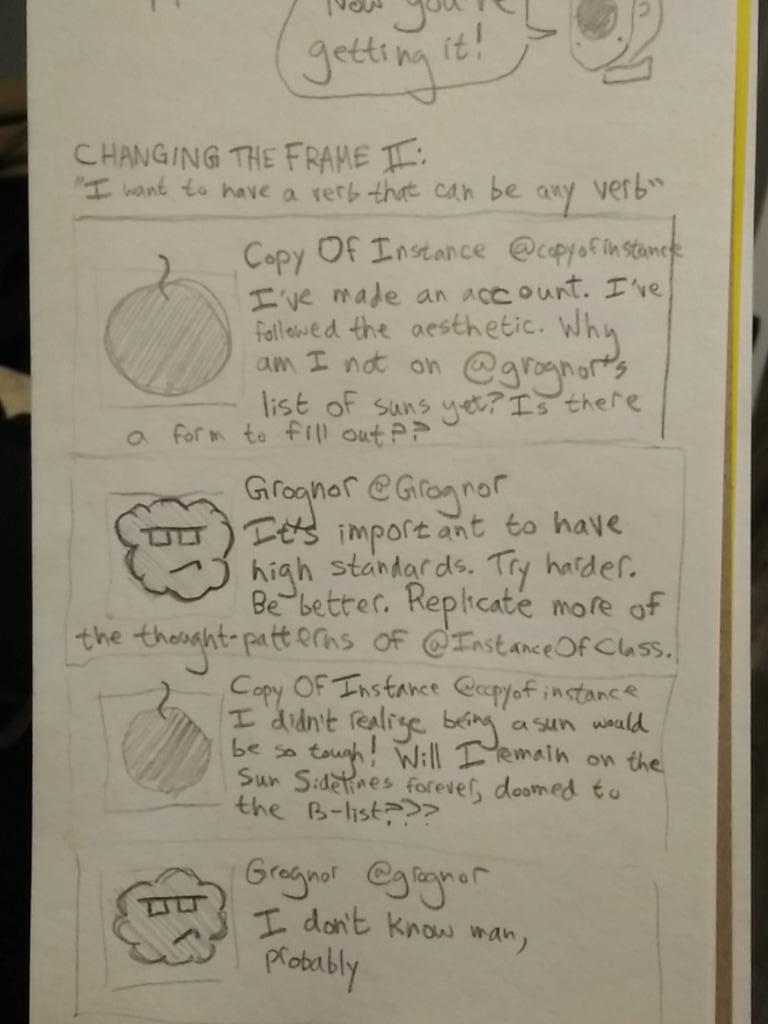 Now you're
getting it!
CHANGING THE FRAME II:
"I want to have a verb that can be any verb"
Copy Of Instance @copyofinstance
I've made an account. I've
followed the aesthetic. Why
am I not on @grognor's
list of suns yet? Is there
a form to fill out??
Grognor @Grognor
It's important to have
high standards. Try harder.
Be better. Replicate more of
the thought-patterns of @InstanceOfClass.
Copy Of Instance @copyofinstance
I didn't realize being a sun would
be so tough! Will I remain on the
Sun Sidelines forever, doomed to
the B-list???
Grognor @grognor
I don't know man,
probably